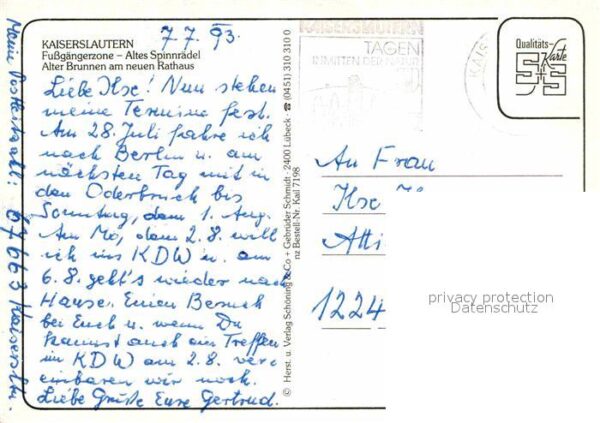 7.7.93.
KAISERSLAUTERN
Fußgängerzone – Altes Spinnrädel
Alter Brunnen am neuen Rathaus
Liebe Ilse! Nun stehen
meine Termine fest.
Am 28. Juli fahre ich
nach Berlin u. am
nächsten Tag mit in
den Oderbruch bis
Sonntag, dem 1. Aug.
Am Mo, dem 2.8. will
ich ins KDW u. am
6.8. geht's wieder nach
Hause. Einen Besuch
bei Euch u. wenn Du
kannst auch ein Treffen
im KDW am 2.8. ver-
einbaren wir noch.
Liebe Grüße Eure Gertrud.
Meine Postleitzahl: 67663 Kaisersltn.
© Herst. u. Verlag Schöning & Co + Gebrüder Schmidt · 2400 Lübeck · ☎ (0451) 310 310 0
nz Bestell-Nr. Kail 7198
KAISERSLAUTERN
TAGEN
INMITTEN DER NATUR
KAIS
Qualitäts-Karte
S+S
An Frau
Ilse
Atti
1224
privacy protection
Datenschutz